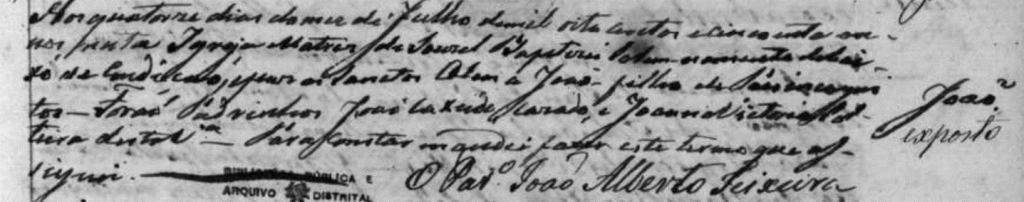 Aos quatorze dias do mez de Julho de mil oito centos e cincoenta an-
nos nesta Igreja Matriz de Sourel Baptizei solemnemente debai-
xo de Condição, e puz os Sanctos Oleos a João filho de Paes incogni
tos — Forão Padrinhos João Cazado, e Joanna Victoria sol-
teira desta Vª — Para constar mandei fazer este termo que as-
signei.
O Parº João Alberto Teixeira
João
exposto
BIBLIOTECA PÚBLICA E
ARQUIVO DISTRITAL